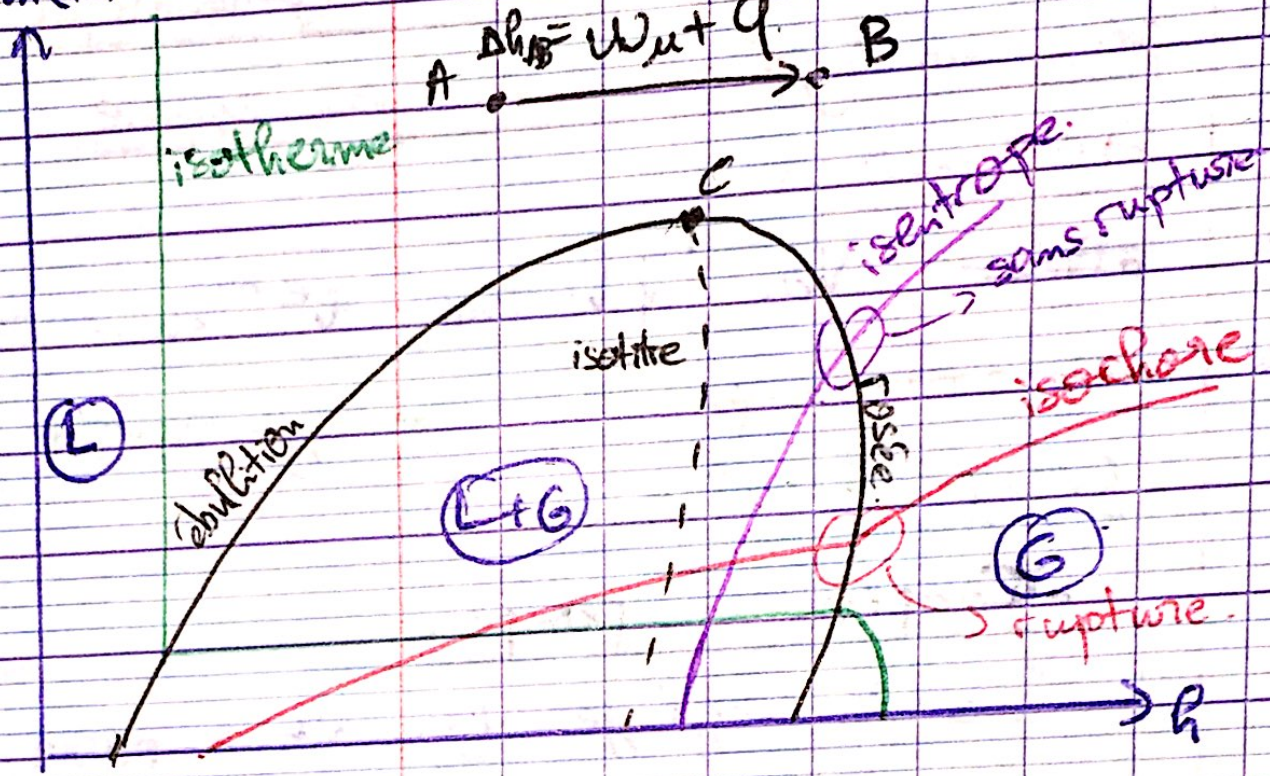 Δh_AB = wu + q
A
B
isotherme
C
isentrope.
sans rupture
isotitre
isochore
L
ébullition
rosée.
L+G
G
rupture.
h